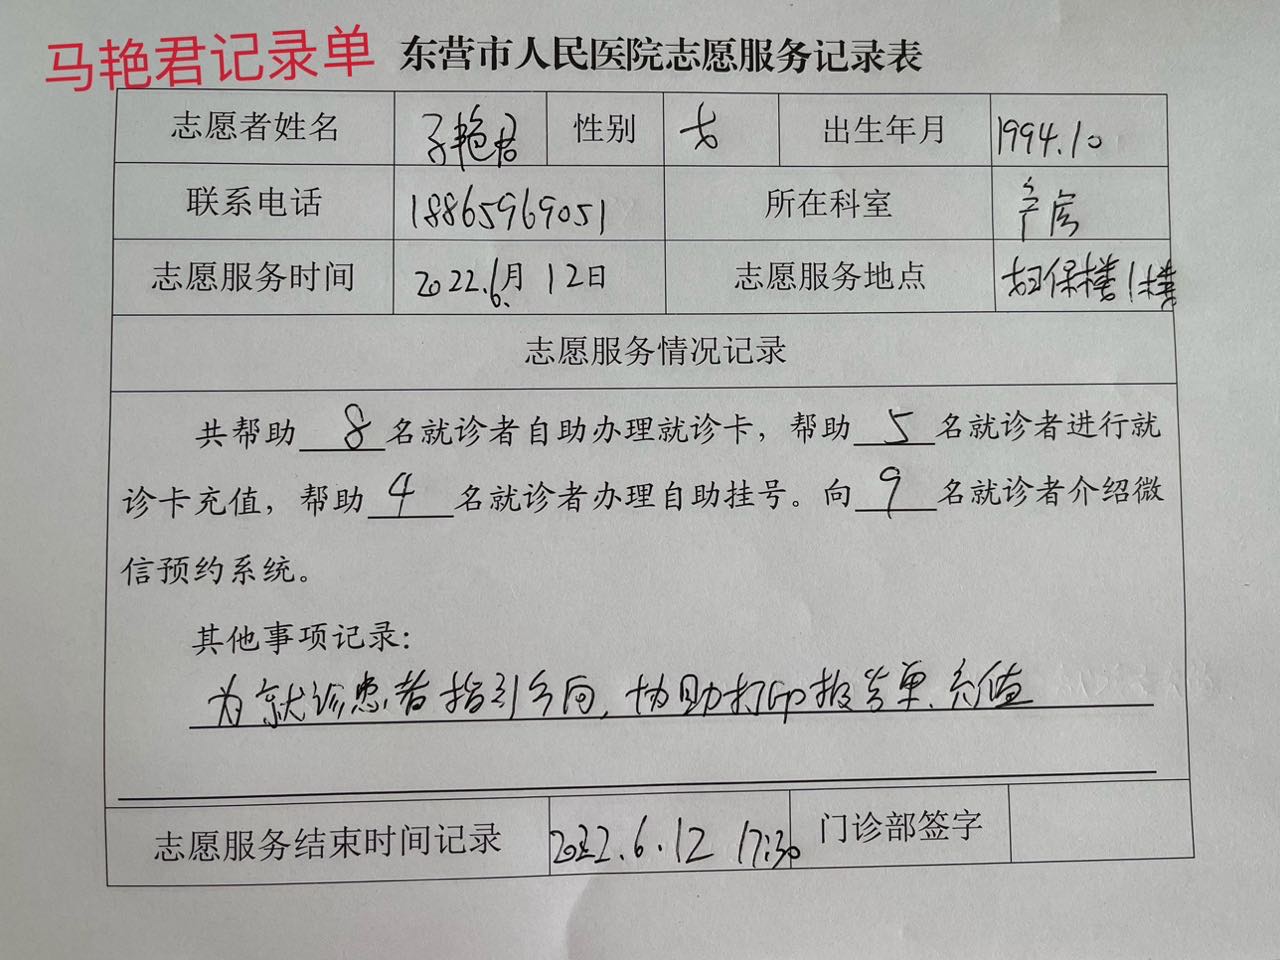 马艳君记录单
东营市人民医院志愿服务记录表
志愿者姓名 马艳君 性别 女 出生年月 1994.10
联系电话 18865969051 所在科室 产房
志愿服务时间 2022.6月12日 志愿服务地点 妇保楼1楼
志愿服务情况记录
共帮助 8 名就诊者自助办理就诊卡，帮助 5 名就诊者进行就
诊卡充值，帮助 4 名就诊者办理自助挂号。向 9 名就诊者介绍微
信预约系统。
其他事项记录：
为就诊患者指引方向，协助打印报告单、充值
志愿服务结束时间记录 2022.6.12 17:30 门诊部签字